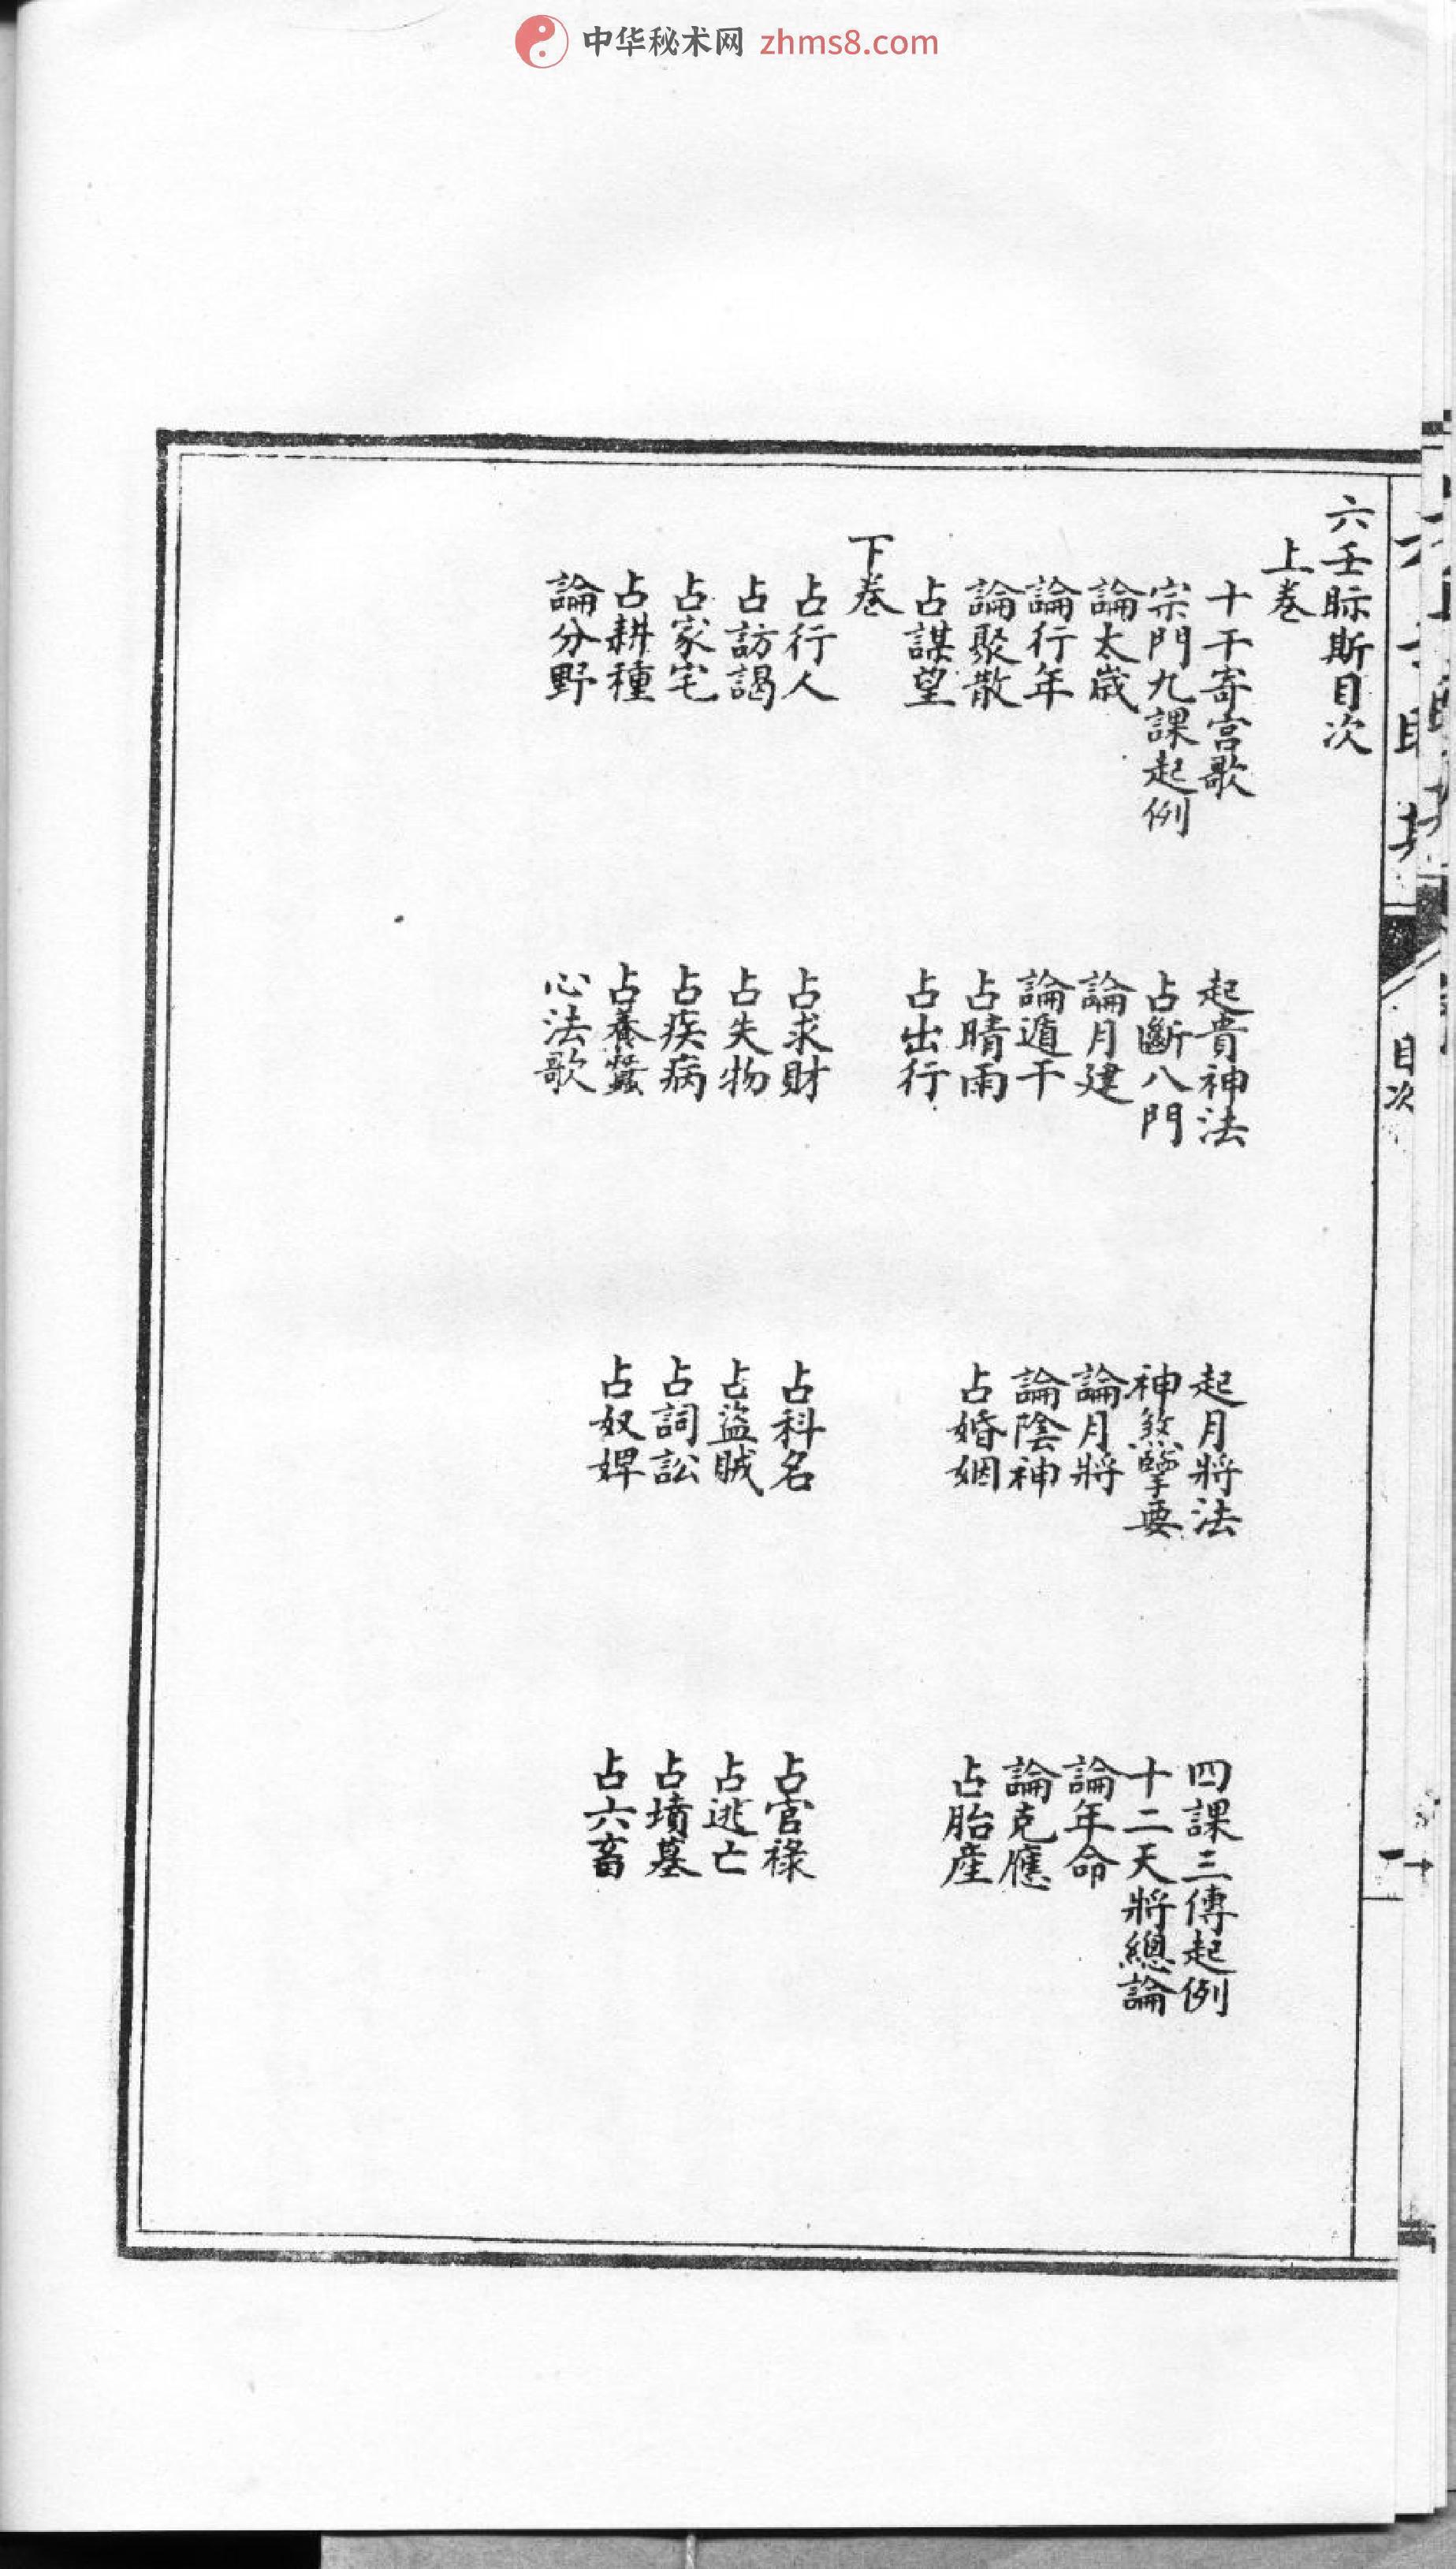 中华秘术网 zhms8.com
六壬眎斯目次
上卷
十干寄宮歌 起貴神法 起月將法 四課三傳起例
宗門九課起例 占斷八門 神煞擥要 十二天將總論
論太歲 論月建 論月將 論年命
論行年 論遁干 論陰神 論克應
論聚散 占晴雨 占婚姻 占胎產
占謀望 占出行
下卷
占行人 占求財 占科名 占官祿
占訪謁 占失物 占盜賊 占逃亡
占家宅 占疾病 占詞訟 占墳墓
占耕種 占養蠶 占奴婢 占六畜
論分野 心法歌
目次
一